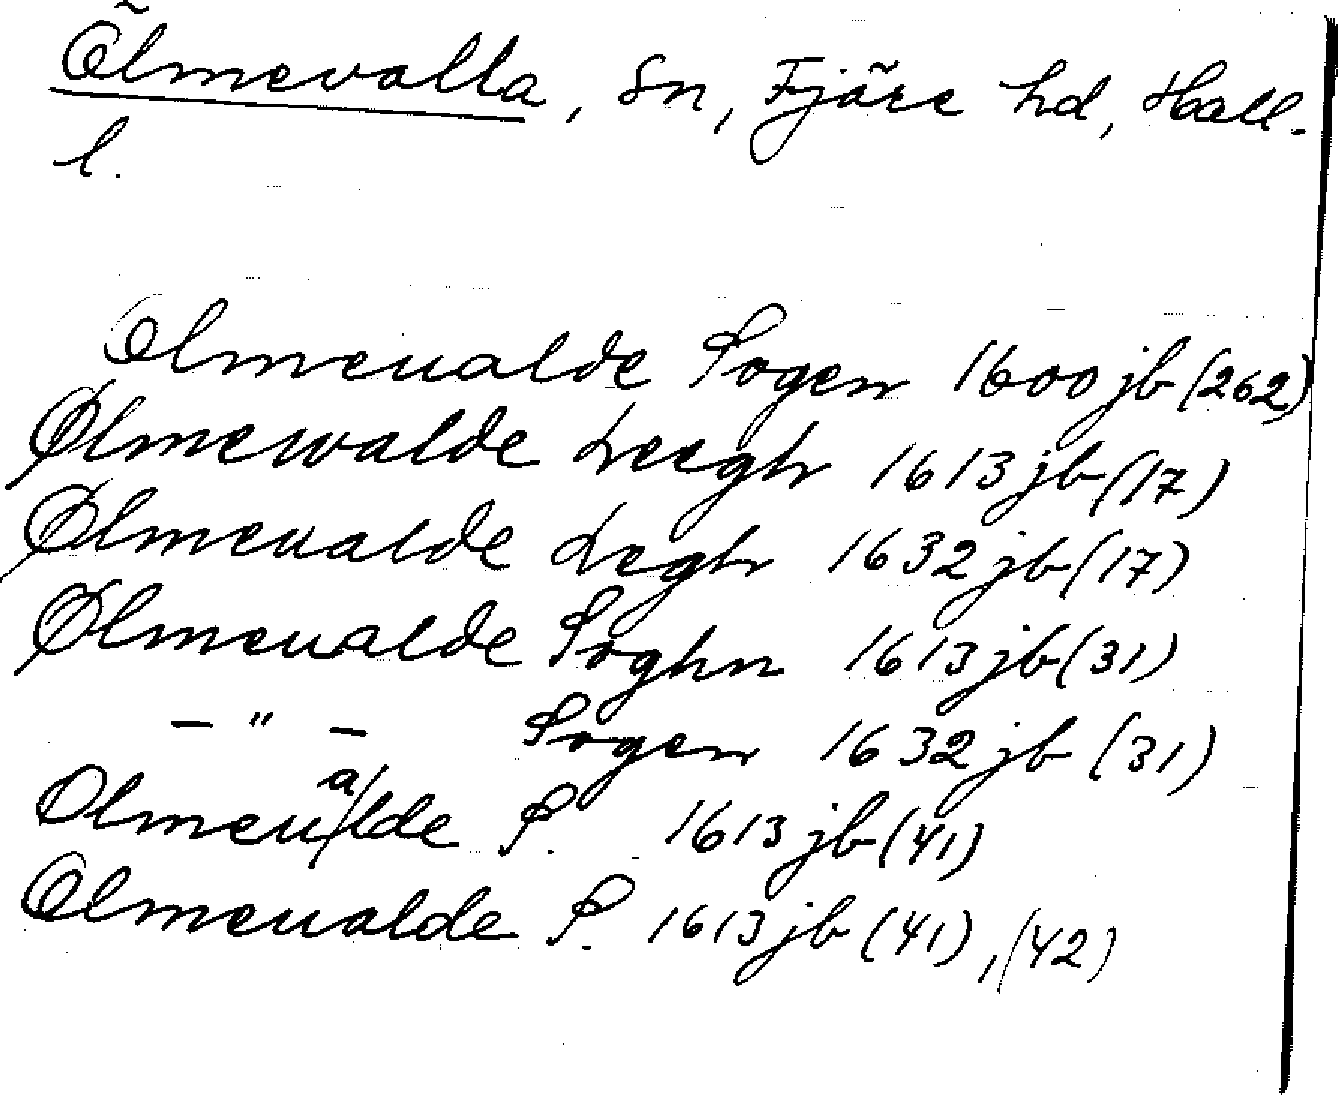 Ölmevalla, Sn, Fjäre hd, Hall-
l.
Olmeualde Sogen 1600 jb (262)
Ølmewalde Leegh 1613 jb (17)
Ølmeualde Legh 1632 jb (17)
Ølmeualde Soghn 1613 jb (31)
— " — Sogen 1632 jb (31)
Olmeualde S. 1613 jb (41)
Olmeualde S. 1613 jb (41), (42)